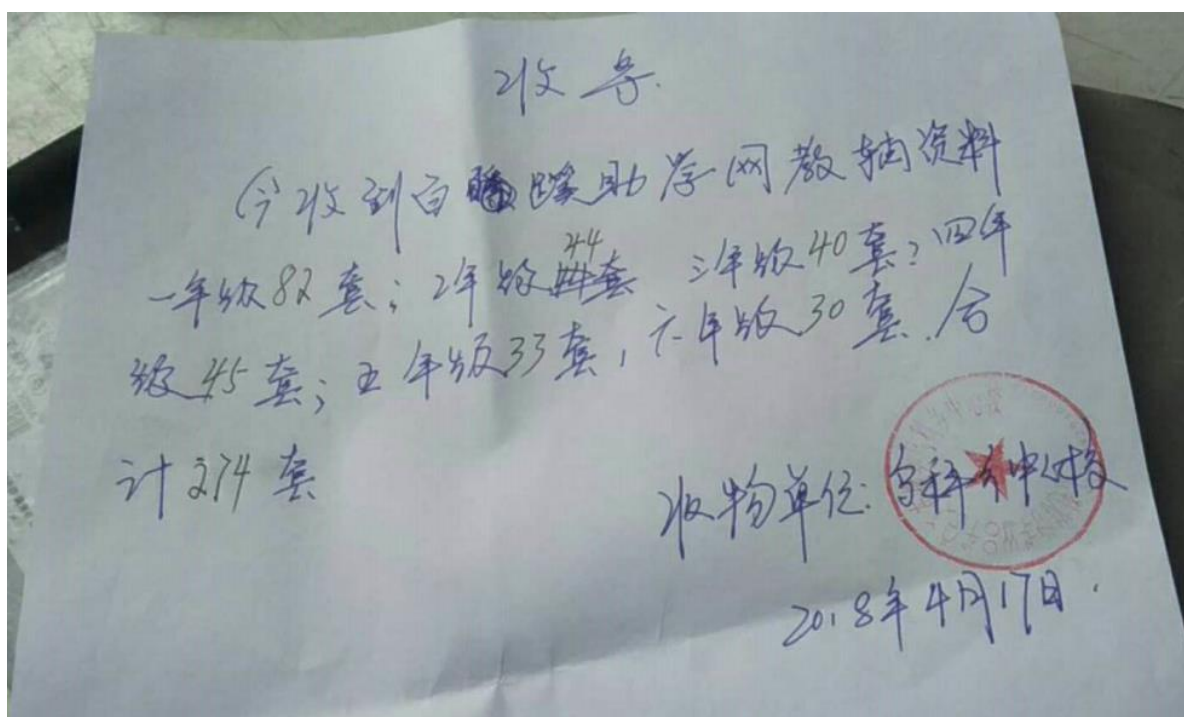 收条.
今收到百蹊助学网教辅资料
一年级82套; 2年级44套 三年级40套; 四年
级45套; 五年级33套, 六年级30套. 合
计274套
收物单位: 乡中心校
2018年4月17日.